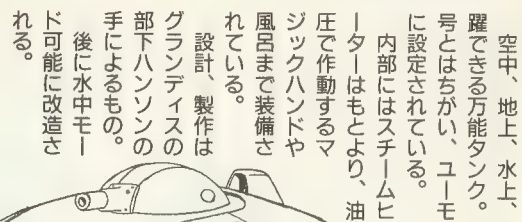 空中、地上、水上、
躍できる万能タンク。
号とはちがい、ユーモ
に設定されている。
　内部にはスチームヒ
ーターはもとより、油
圧で作動するマ
ジックハンドや
風呂まで装備さ
れている。
　設計、製作は
グランディスの
部下ハンソンの
手によるもの。
　後に水中モー
ド可能に改造さ
れる。